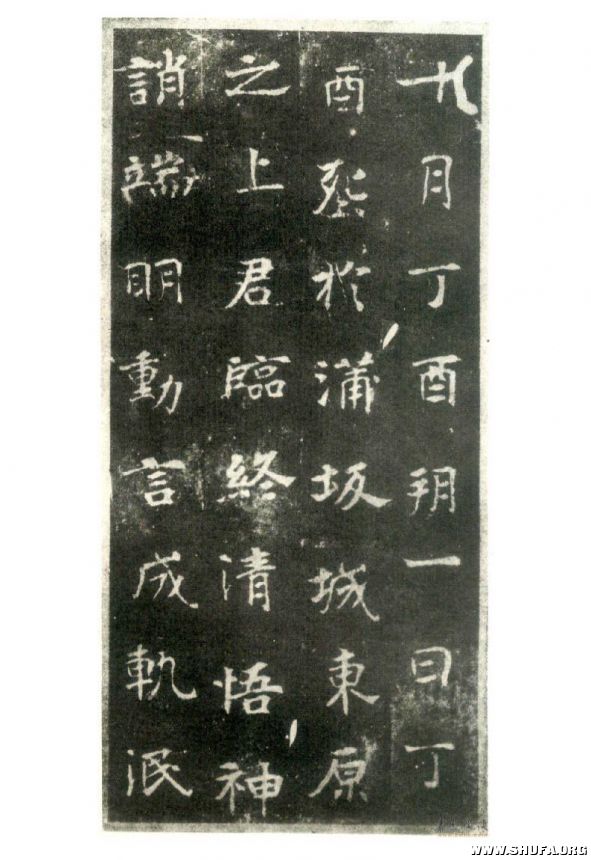 十月丁酉朔一日丁
酉葬於蒲坂城東原
之上君臨終清悟神
誚端明動言成軌泯
WWW.SHUFA.ORG